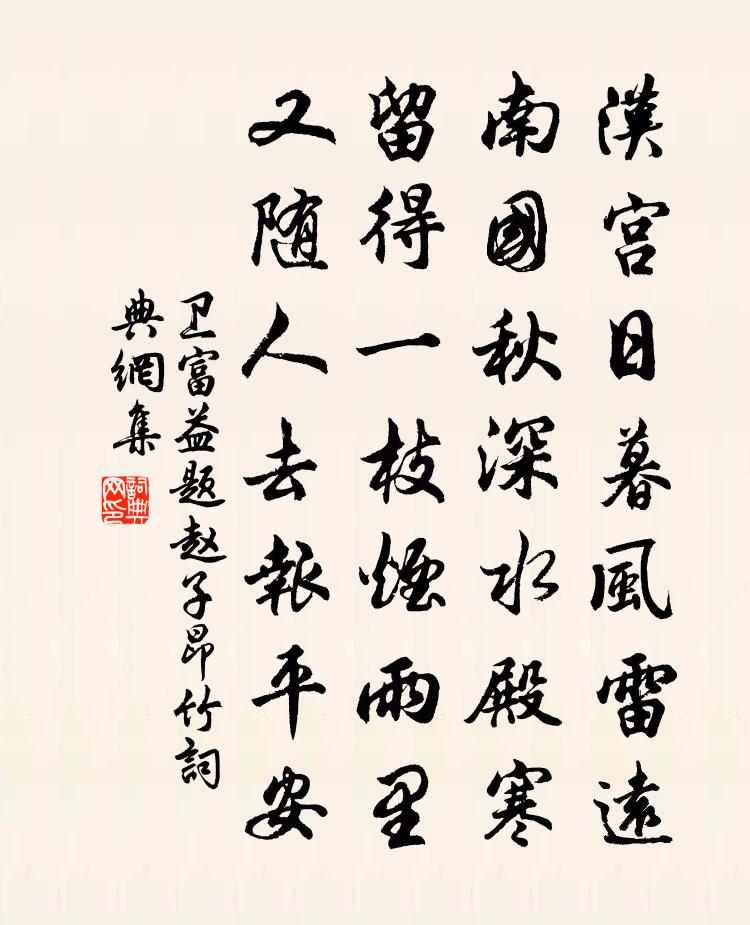 漢宮日暮風雷遠
南國秋深水殿寒
留得一枝煙雨里
又随人去報平安
卫富益题赵子昂竹詞
典網集
詞典
网印